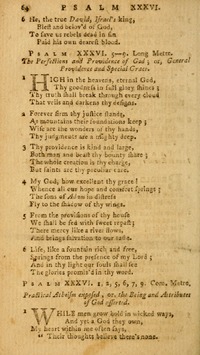 64 PSALM XXXVI.
6 He, the true David, Israel's king,
Blest and belov'd of God,
To save us rebels dead in sin
Paid his own dearest blood.
PSALM XXXVI. 5—9. Long Metre.
The Perfections and Providence of God; or, General
Providence and Special Grace.
1 HIGH in the heavens, eternal God,
Thy goodness in full glory shines;
Thy truth shall break through every cloud
That veils and darkens thy designs.
2 Forever firm thy justice stands,
As mountains their foundations keep;
Wise are the wonders of thy hands,
Thy judgments are a mighty deep.
3 Thy providence is kind and large,
Both man and beast thy bounty share;
The whole creation is thy charge,
But saints are thy peculiar care.
4 My God, how excellent thy grace!
Whence all our hope and comfort springs;
The sons of Adam in distress
Fly to the shadow of thy wings.
5 From the provisions of thy house
We shall be fed with sweet repast;
There mercy like a river flows,
And brings salvation to our taste.
6 Life, like a fountain rich and free,
Springs from the presence of my Lord;
And in thy light our souls shall see
The glories promis'd in thy word.
PSALM XXXVI. 1, 2, 5, 6, 7, 9. Com. Metre.
Practical Atheism exposed; or, the Being and Attributes
of God asserted.
1 WHILE men grow bold in wicked ways,
And yet a God they own,
My heart within me often says,
"Their thoughts believe there's none.